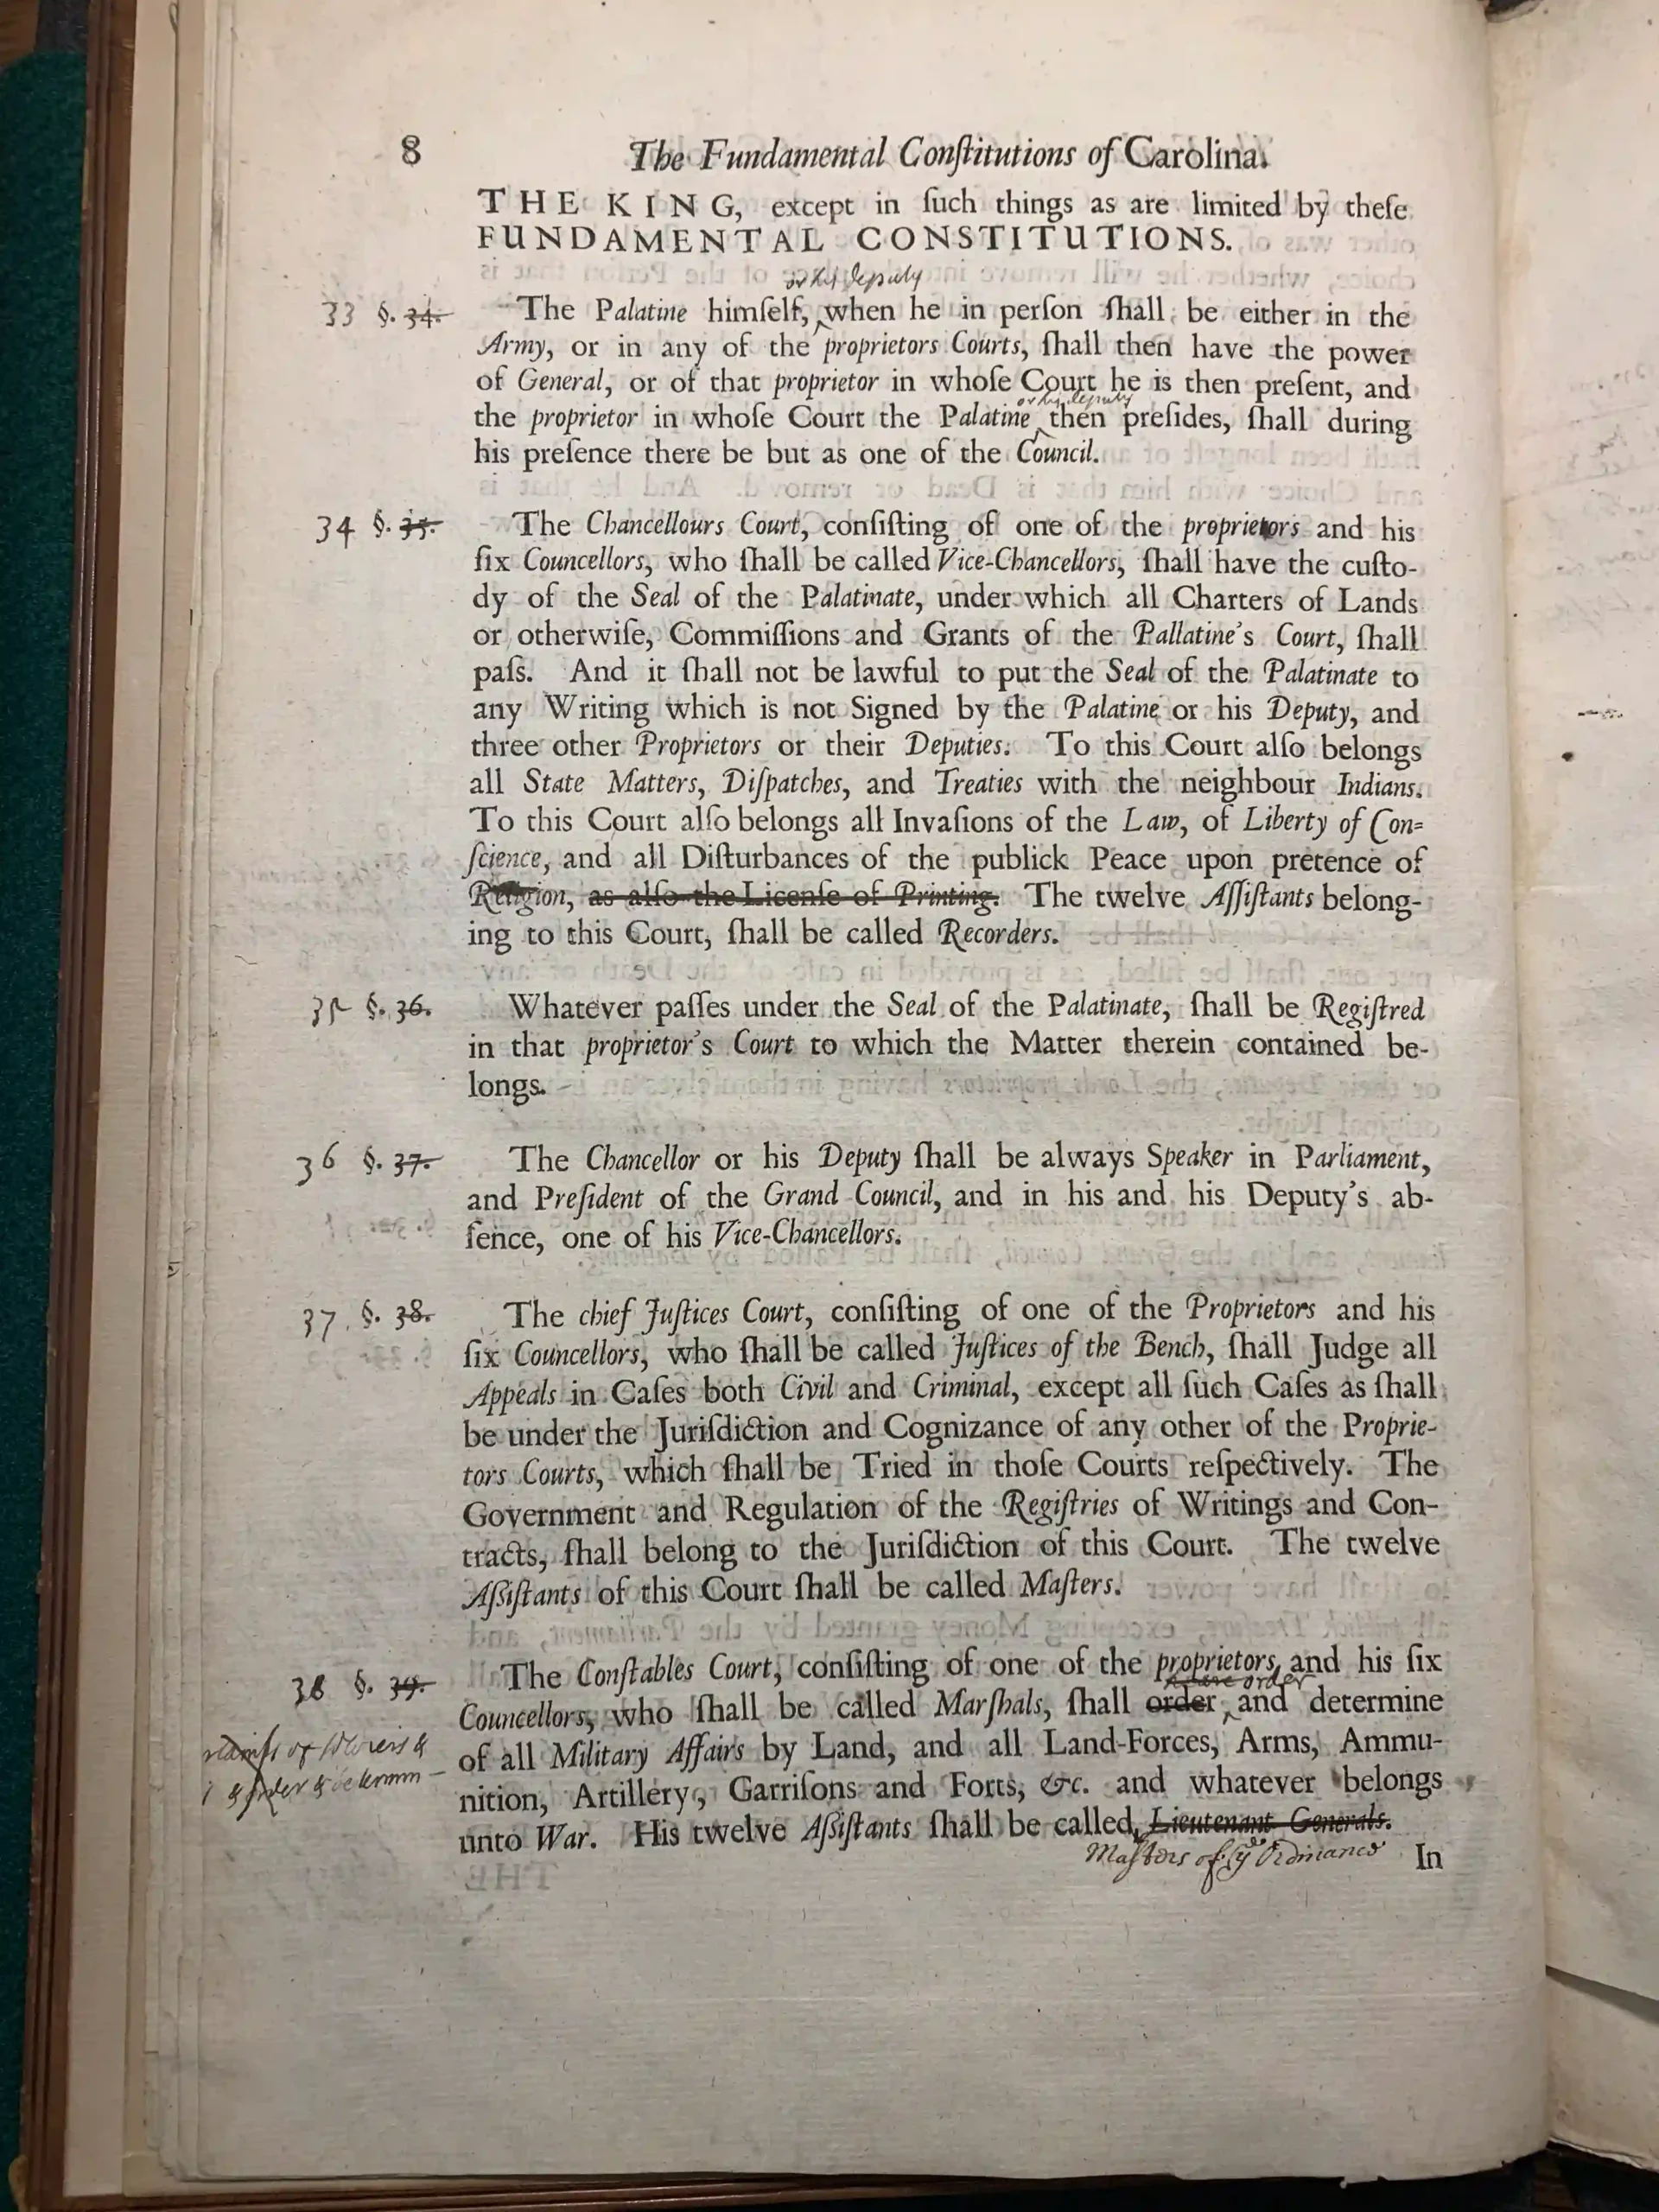 8 The Fundamental Conſtitutions of Carolina.
THE KING, except in ſuch things as are limited by theſe
FUNDAMENTAL CONSTITUTIONS.
or his deputy
33 §. 34. The Palatine himſelf, when he in perſon ſhall be either in the
Army, or in any of the proprietors Courts, ſhall then have the power
of General, or of that proprietor in whoſe Court he is then preſent, and
or his deputy
the proprietor in whoſe Court the Palatine then preſides, ſhall during
his preſence there be but as one of the Council.
34 §. 35. The Chancellours Court, conſiſting of one of the proprietors and his
ſix Councellors, who ſhall be called Vice-Chancellors, ſhall have the cuſto-
dy of the Seal of the Palatinate, under which all Charters of Lands
or otherwiſe, Commiſſions and Grants of the Pallatine's Court, ſhall
paſs. And it ſhall not be lawful to put the Seal of the Palatinate to
any Writing which is not Signed by the Palatine or his Deputy, and
three other Proprietors or their Deputies. To this Court alſo belongs
all State Matters, Diſpatches, and Treaties with the neighbour Indians.
To this Court alſo belongs all Invaſions of the Law, of Liberty of Con-
ſcience, and all Diſturbances of the publick Peace upon pretence of
Religion, as alſo the Licenſe of Printing. The twelve Aſſiſtants belong-
ing to this Court, ſhall be called Recorders.
35 §. 36. Whatever paſſes under the Seal of the Palatinate, ſhall be Regiſtred
in that proprietor's Court to which the Matter therein contained be-
longs.
36 §. 37. The Chancellor or his Deputy ſhall be always Speaker in Parliament,
and Preſident of the Grand Council, and in his and his Deputy's ab-
ſence, one of his Vice-Chancellors.
37. §. 38. The chief Juſtices Court, conſiſting of one of the Proprietors and his
ſix Councellors, who ſhall be called Juſtices of the Bench, ſhall Judge all
Appeals in Caſes both Civil and Criminal, except all ſuch Caſes as ſhall
be under the Juriſdiction and Cognizance of any other of the Proprie-
tors Courts, which ſhall be Tried in thoſe Courts reſpectively. The
Government and Regulation of the Regiſtries of Writings and Con-
tracts, ſhall belong to the Juriſdiction of this Court. The twelve
Aſſiſtants of this Court ſhall be called Maſters.
38 §. 39. The Conſtables Court, conſiſting of one of the proprietors, and his ſix
order
Councellors, who ſhall be called Marſhals, ſhall order and determine
of all Military Affairs by Land, and all Land-Forces, Arms, Ammu-
nition, Artillery, Garriſons and Forts, &c. and whatever belongs
unto War. His twelve Aſſiſtants ſhall be called Lieutenant Generals.
Maſters of yᵉ Ordinance In